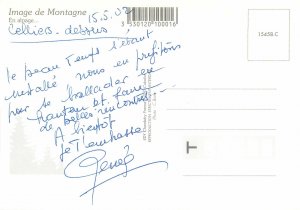 Image de Montagne
En alpage...
15.5.02
Celliers-dessus
3 530120 100016
1545B.C
le beau temps s'étant
installé nous en profitons
pour se ballader en
et faire
de belles rencontres!
A bientôt
je t'embrasse
T